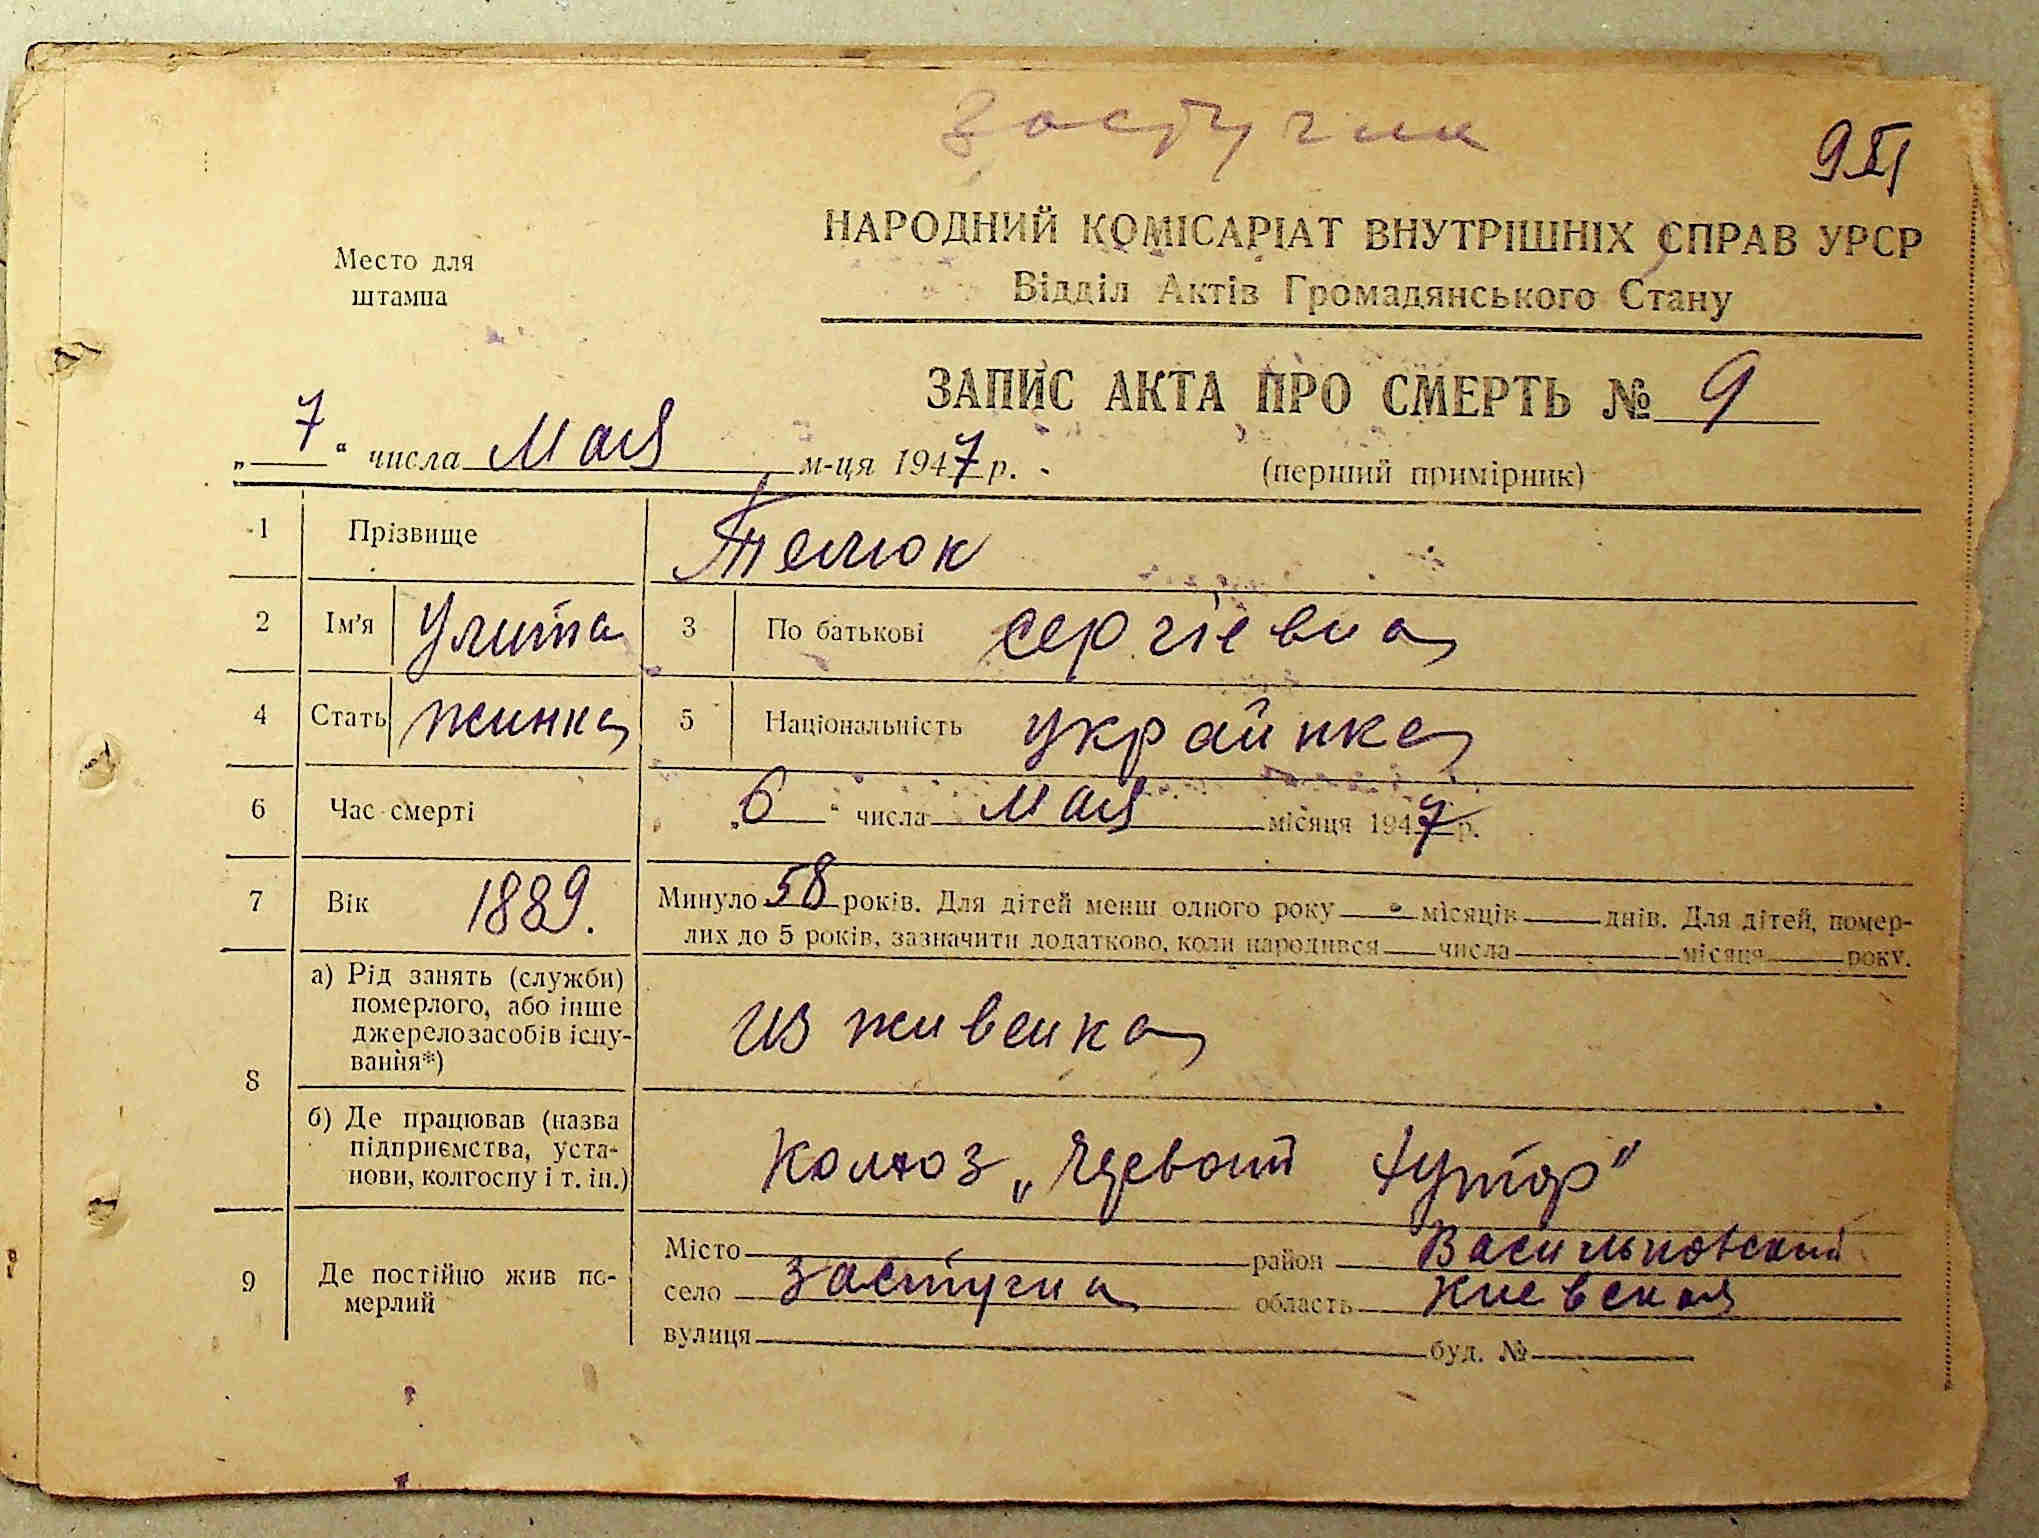 Застугна
НАРОДНИЙ КОМІСАРІАТ ВНУТРІШНІХ СПРАВ УРСР
Место для
штампа
Відділ Актів Громадянського Стану
ЗАПИС АКТА ПРО СМЕРТЬ № 9
„ 7 “ числа Мая м-ця 1947 р.
(перший примірник)
1 Прізвище Телюк
2 Ім'я Улита 3 По батькові Сергіевна
4 Стать жинка 5 Національність украйнка
6 Час смерті „ 6 “ числа Мая місяця 1947 р.
7 Вік 1889. Минуло 58 років. Для дітей менш одного року місяців днів. Для дітей, помер-
лих до 5 років, зазначити додатково, коли народився числа місяця року.
8 а) Рід занять (служби)
померлого, або інше
джерело засобів існу-
вання*)
из живенка
б) Де працював (назва
підприємства, уста-
нови, колгоспу і т. ін.)
Колхоз „Червоний Хутор"
9 Де постійно жив по-
мерлий
Місто район Васильковский
село Застугна область Киевская
вулиця буд. №